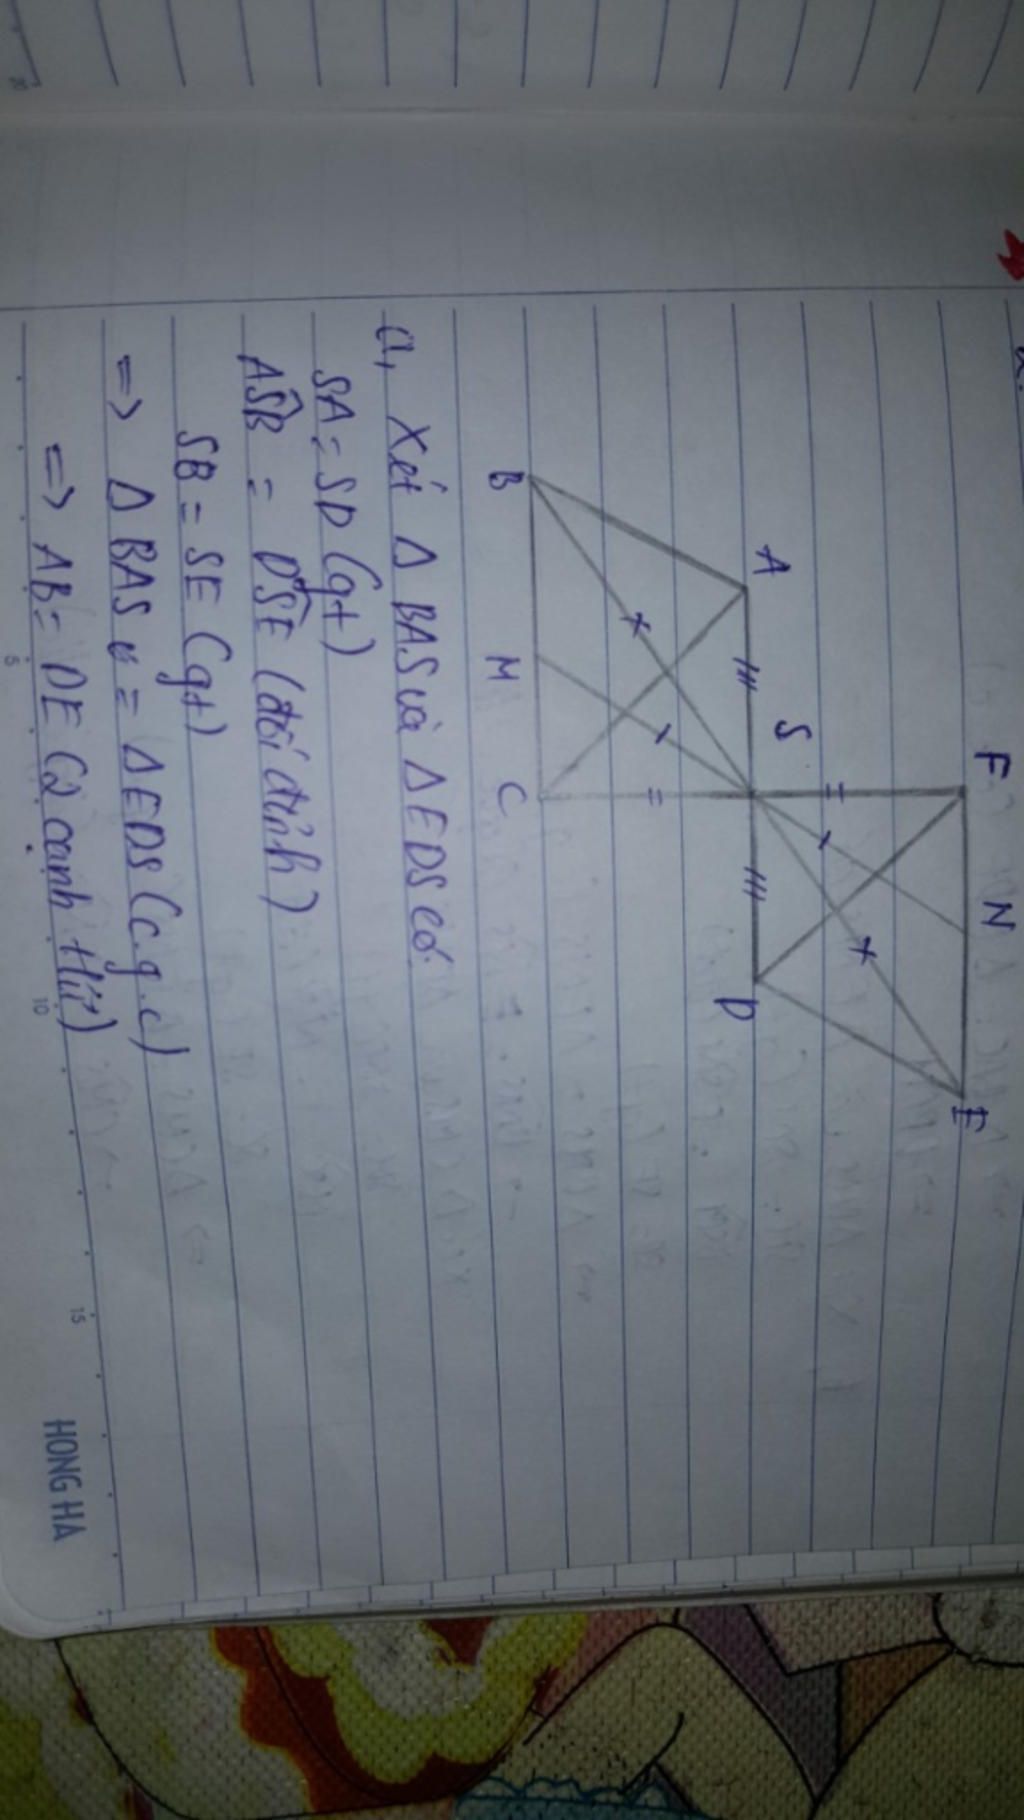 F N E
A S D
B M C
a, Xét Δ BAS và Δ EDS có
SA = SD (gt)
ASB = DSE (đối đỉnh)
SB = SE (gt)
=> Δ BAS = Δ EDS (c.g.c)
=> AB = DE (2 cạnh t/ứ)
5 10 15
HONG HA